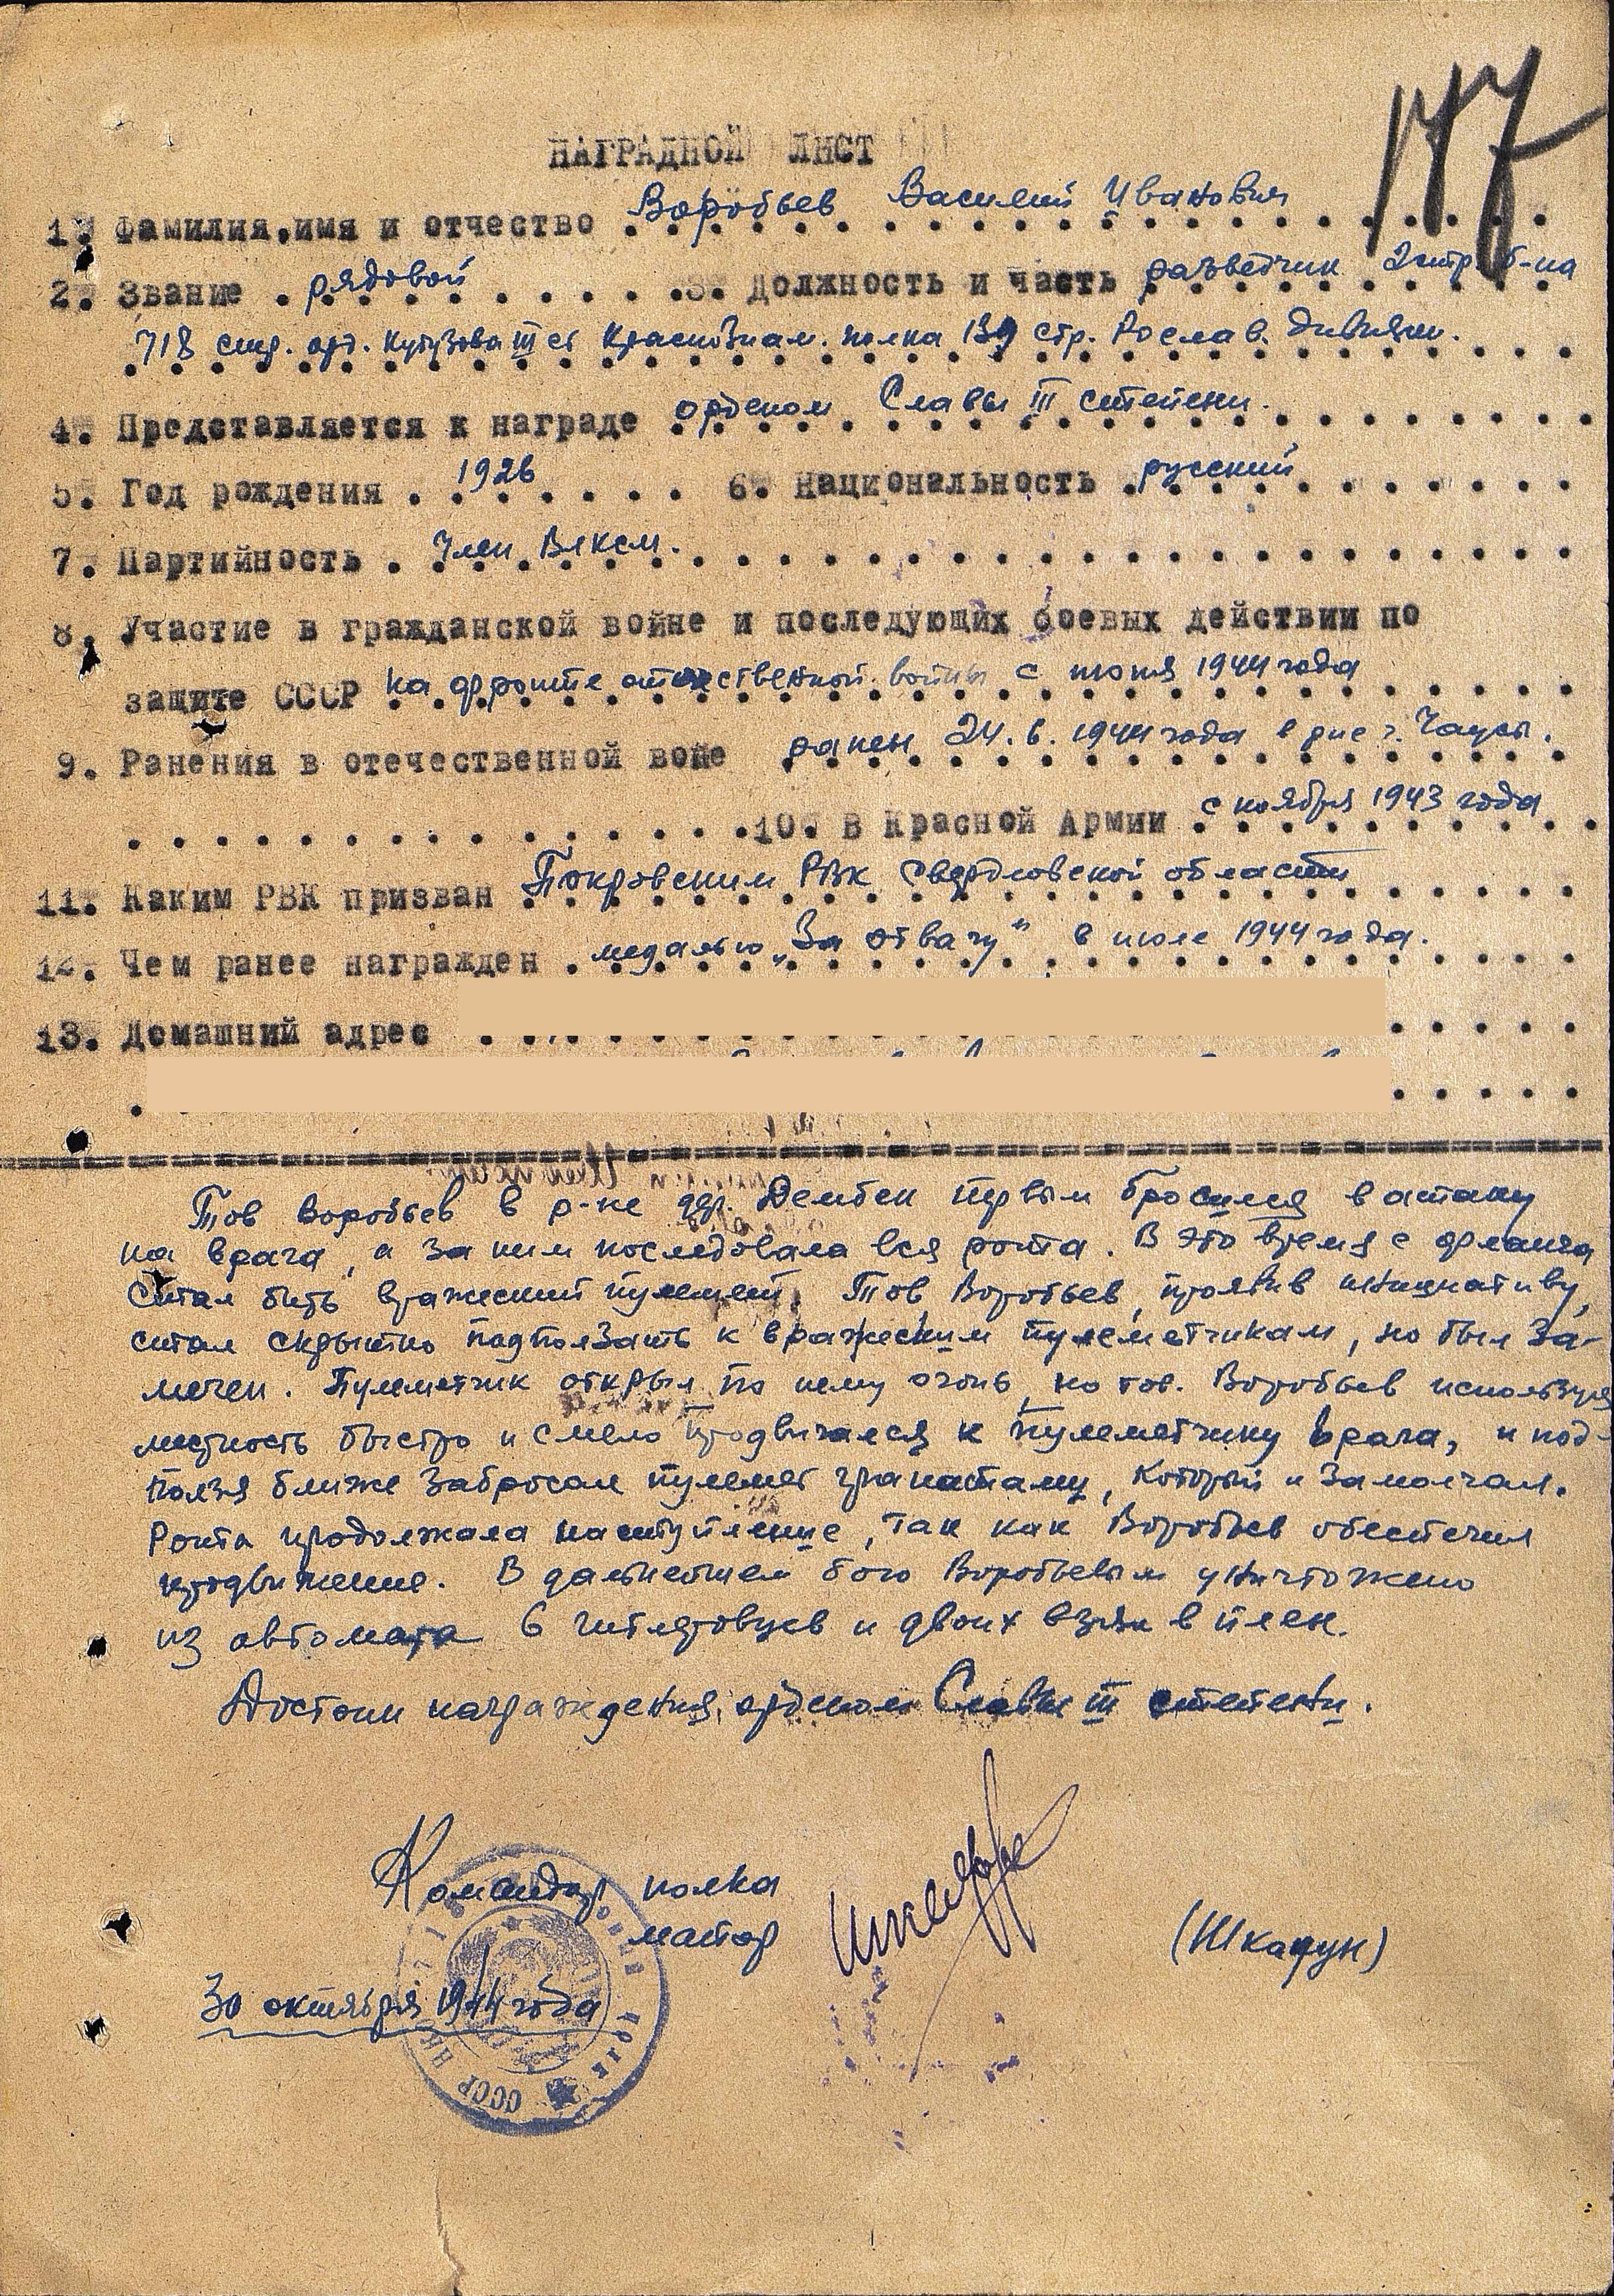 177
НАГРАДНОЙ ЛИСТ
1. Фамилия, имя и отчество Воробьев Василий Иванович
2. Звание рядовой 3. Должность и часть разведчик 2 стр. б-на
718 стр. орд. Кутузова III ст Краснознам. полка 139 стр. Рослав. дивизии.
4. Представляется к награде орденом Славы III степени.
5. Год рождения 1926 6. Национальность русский
7. Партийность Член ВЛКСМ.
8. Участие в гражданской войне и последующих боевых действии по
защите СССР на фронте отечественной войны с июня 1944 года
9. Ранения в отечественной воне ранен 24.6.1944 года в р-не г. Чаусы.
10. В Красной Армии с ноября 1943 года
11. Каким РВК призван Покровским РВК Свердловской области
12. Чем ранее награжден медалью „За отвагу" в июле 1944 года.
13. Домашний адрес
Тов Воробьев в р-не дер. Дембек первым бросился в атаку
на врага, а за ним последовала вся рота. В это время с фланга
стал бить вражеский пулемет. Тов. Воробьев, проявив инициативу,
стал скрытно подползать к вражеским пулеметчикам, но был за-
мечен. Пулеметчик открыл по нему огонь, но тов. Воробьев используя
местность быстро и смело продвигался к пулеметчику врага, и под-
ползя ближе забросал пулемет гранатами, который и замолчал.
Рота продолжала наступление, так как Воробьев обеспечил
продвижение. В дальнейшем бою Воробьевым уничтожено
из автомата 6 гитлеровцев и двоих взял в плен.
Достоин награждения орденом Славы III степени.
Командир полка
майор (Шкарун)
30 октября 1944 года
СССР